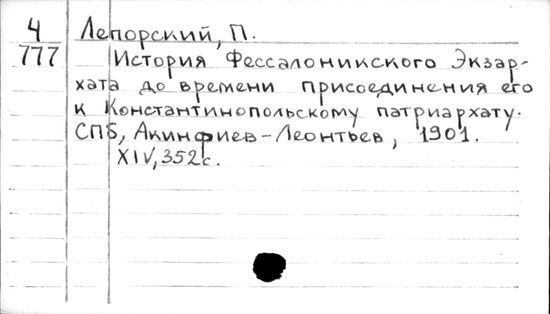 4 Лепорский, П.
777 История Фессалоникского Экзар-
хата до времени присоединения его
к Константинопольскому патриархату.
СПБ, Акинфиев-Леонтьев, 1901.
XIV, 352 с.